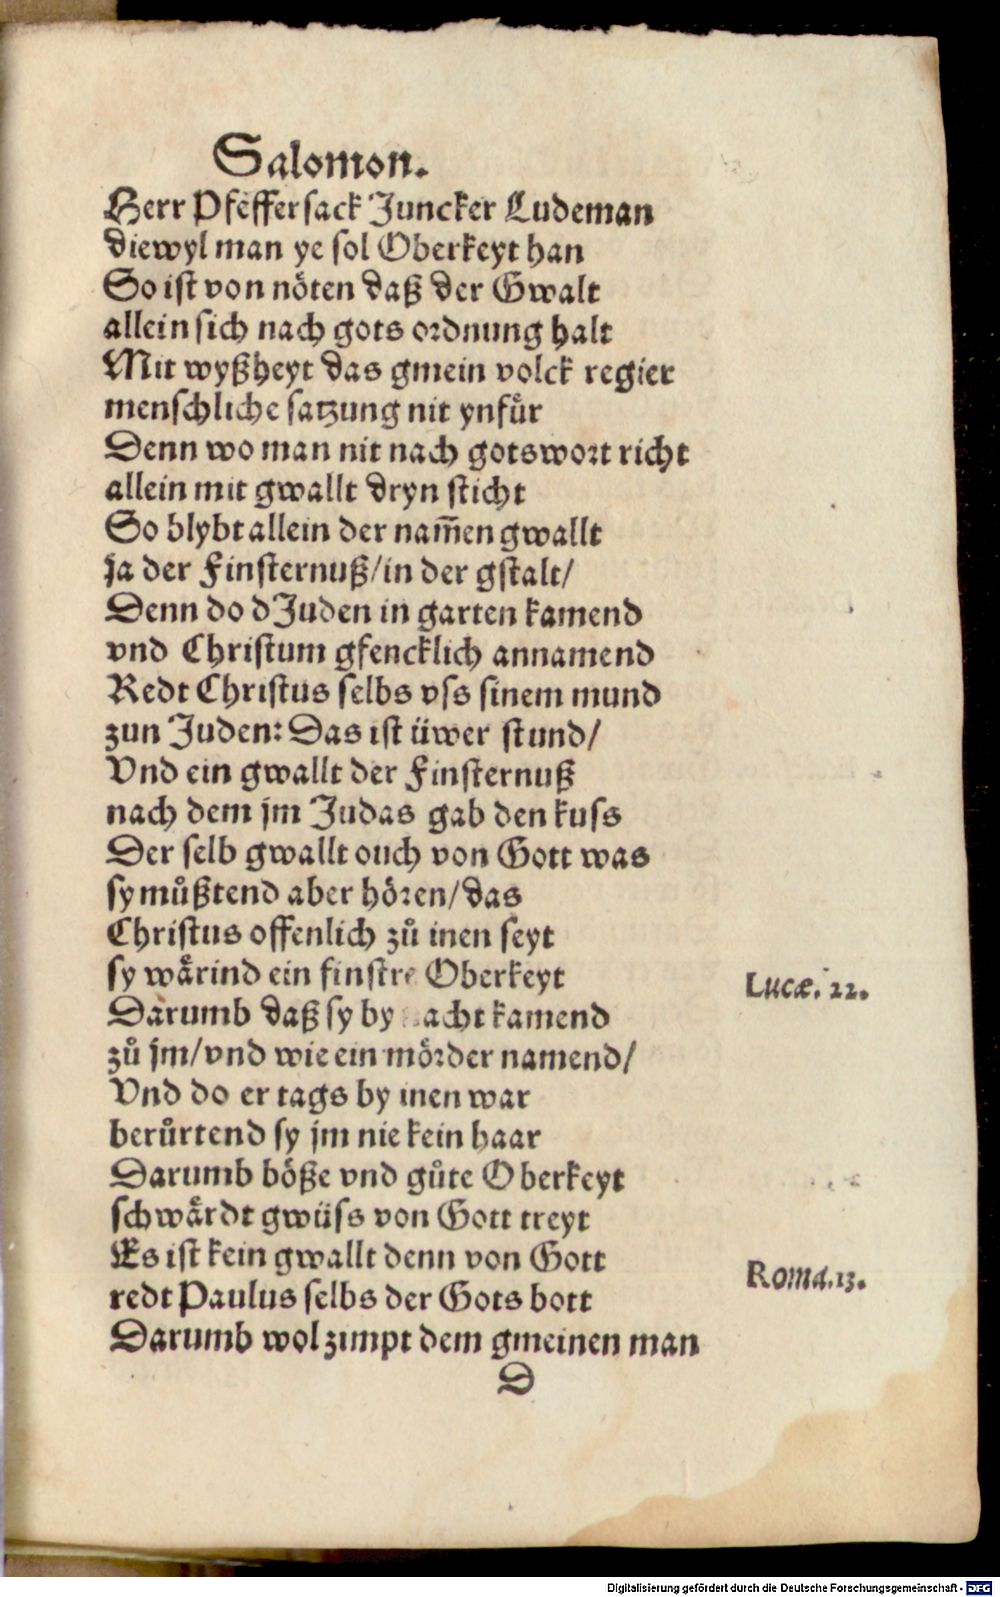 Salomon.
Herr Pfeffersack Juncker Ludeman
diewyl man ye sol Oberkeyt han
So ist von nöten daß der Gwalt
allein sich nach gots ordnung halt
Mit wyßheyt das gmein volck regier
menschliche satzung nit ynfür
Denn wo man nit nach gotswort richt
allein mit gwallt dryn sticht
So blybt allein der nam̃en gwallt
ja der Finsternuß/in der gstalt/
Denn do dJuden in garten kamend
vnd Christum gfencklich annamend
Redt Christus selbs vss sinem mund
zun Juden: Das ist üwer stund/
Vnd ein gwallt der Finsternuß
nach dem jm Judas gab den kuss
Der selb gwallt ouch von Gott was
sy můßtend aber hören/das
Christus offenlich zů inen seyt
sy wärind ein finstre Oberkeyt
Darumb daß sy by acht kamend
zů jm/vnd wie ein mörder namend/
Vnd do er tags by inen war
berůrtend sy jm nie kein haar
Darumb böße vnd gůte Oberkeyt
schwärdt gwüss von Gott treyt
Es ist kein gwallt denn von Gott
redt Paulus selbs der Gots bott
Darumb wol zimpt dem gmeinen man
D
Lucæ. 22.
Roma.13.
Digitalisierung gefördert durch die Deutsche Forschungsgemeinschaft - DFG